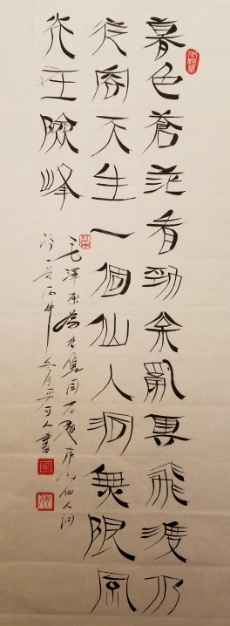 暮色蒼茫看勁松亂雲飛渡仍
從容天生一個仙人洞無限風
光在險峰
毛澤東為李進同志題 仙人洞
照一首丙申冬月 可人書